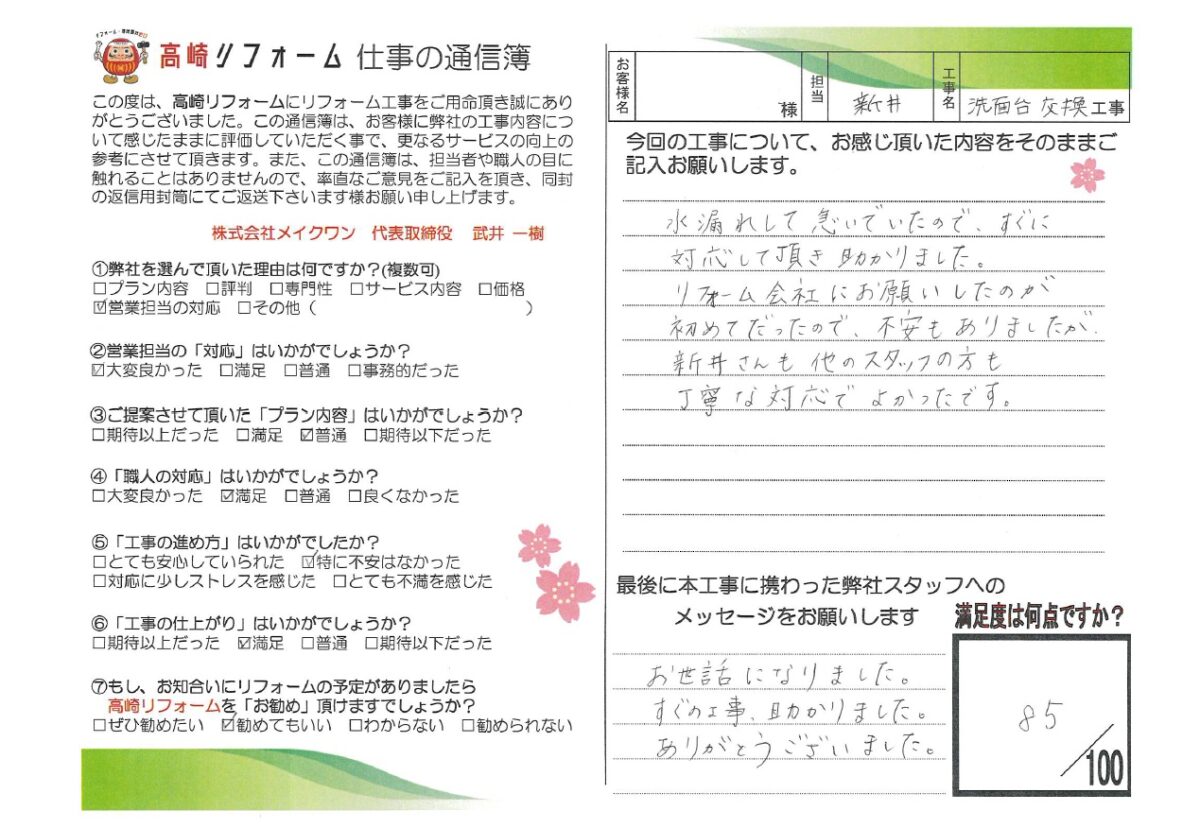 リフォーム・増改築はぜひ
高崎リフォーム 仕事の通信簿
この度は、高崎リフォームにリフォーム工事をご用命頂き誠にあり
がとうございました。この通信簿は、お客様に弊社の工事内容につ
いて感じたままに評価していただく事で、更なるサービスの向上の
参考にさせて頂きます。また、この通信簿は、担当者や職人の目に
触れることはありませんので、率直なご意見をご記入を頂き、同封
の返信用封筒にてご返送下さいます様お願い申し上げます。
株式会社メイクワン 代表取締役 武井 一樹
①弊社を選んで頂いた理由は何ですか？(複数可)
□プラン内容 □評判 □専門性 □サービス内容 □価格
☑営業担当の対応 □その他（ ）
②営業担当の「対応」はいかがでしょうか？
☑大変良かった □満足 □普通 □事務的だった
③ご提案させて頂いた「プラン内容」はいかがでしょうか？
□期待以上だった □満足 ☑普通 □期待以下だった
④「職人の対応」はいかがでしょうか？
□大変良かった ☑満足 □普通 □良くなかった
⑤「工事の進め方」はいかがでしたか？
□とても安心していられた ☑特に不安はなかった
□対応に少しストレスを感じた □とても不満を感じた
⑥「工事の仕上がり」はいかがでしょうか？
□期待以上だった ☑満足 □普通 □期待以下だった
⑦もし、お知合いにリフォームの予定がありましたら
高崎リフォームを「お勧め」頂けますでしょうか？
□ぜひ勧めたい ☑勧めてもいい □わからない □勧められない
お客様名 様 担当 新井 工事名 洗面台交換工事
今回の工事について、お感じ頂いた内容をそのままご
記入お願いします。
水漏れして急いでいたので、すぐに
対応して頂き助かりました。
リフォーム会社にお願いしたのが
初めてだったので、不安もありましたが、
新井さんも他のスタッフの方も
丁寧な対応でよかったです。
最後に本工事に携わった弊社スタッフへの
メッセージをお願いします
お世話になりました。
すぐの工事、助かりました。
ありがとうございました。
満足度は何点ですか？
85/100